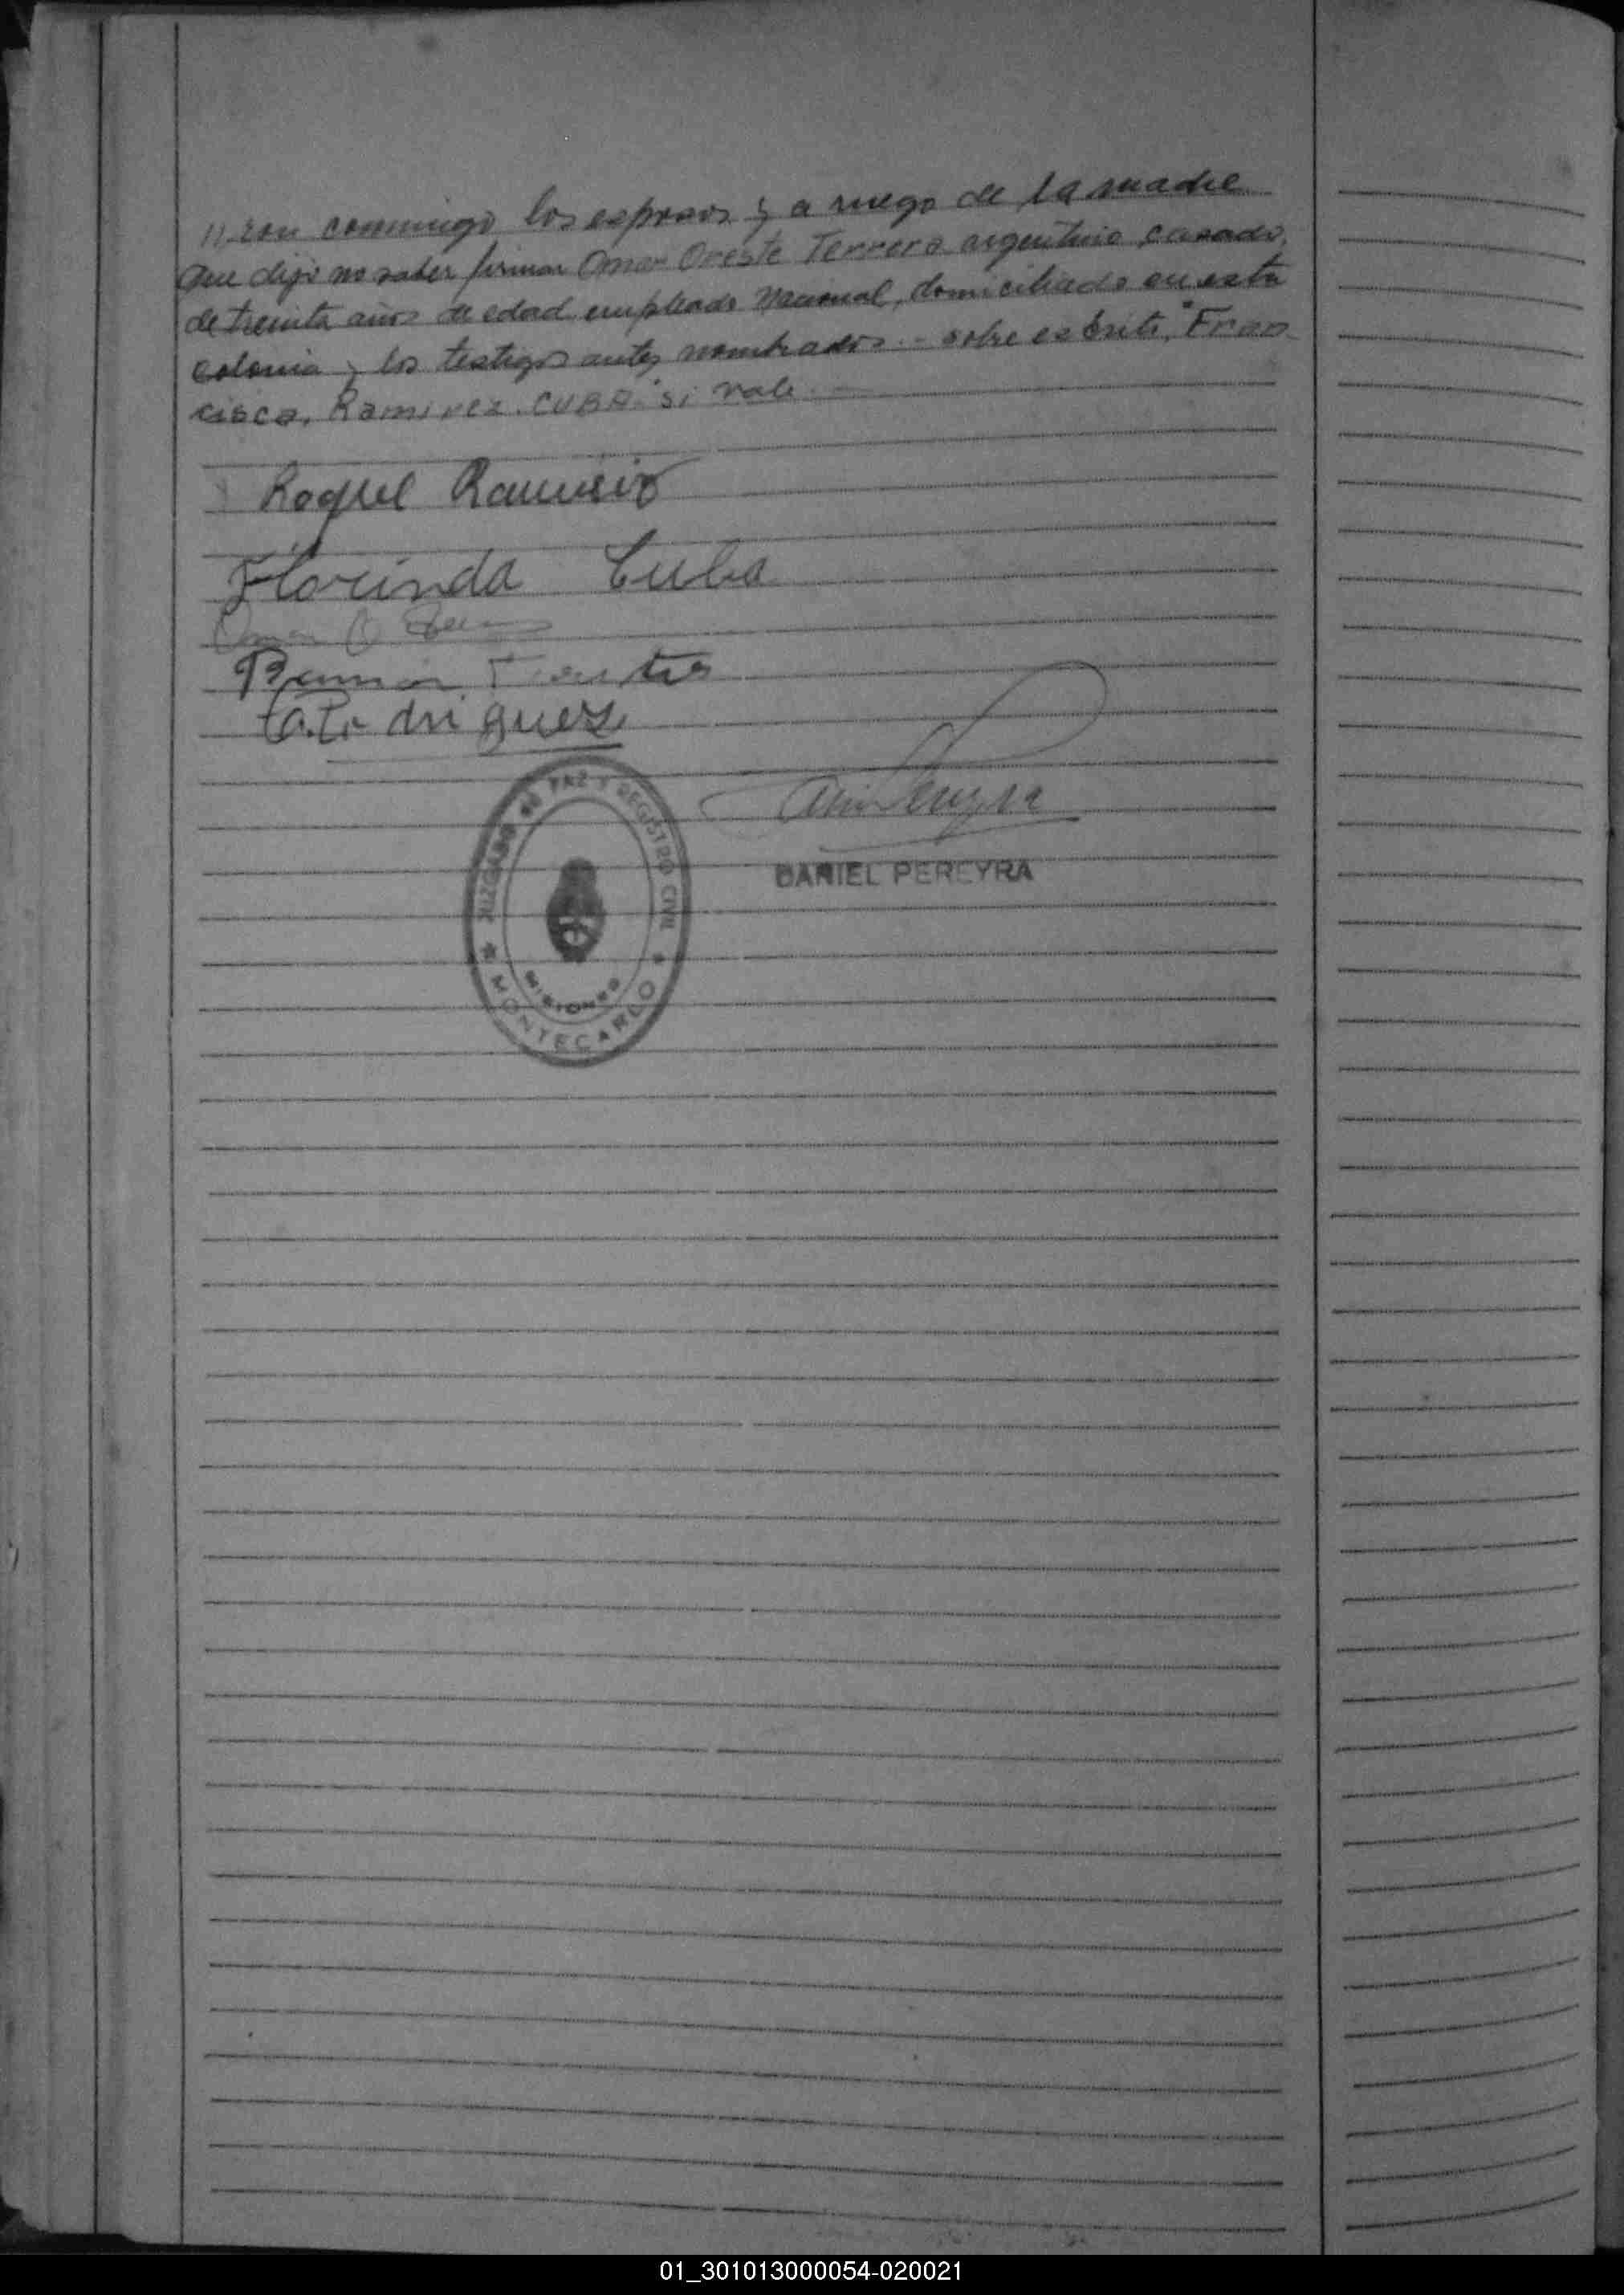 ron conmigo los esposos y a ruego de la madre
que dijo no saber firmar Omar Oreste Terrera argentino, casado,
de treinta años de edad empleado Nacional, domiciliado en esta
colonia y los testigos antes nombrados.- sobre escrito "Fran
cisca, Ramirez. CUBA" si vale
Ramirez
Florinda Cuba
Omar O
Ramon
JUZGADO DE PAZ Y REGISTRO CIVIL
MISIONES
MONTECARLO
DANIEL PEREYRA
01_301013000054-020021